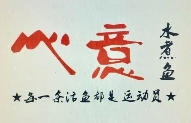 心意
水煮鱼
★每一条活鱼都是运动员★